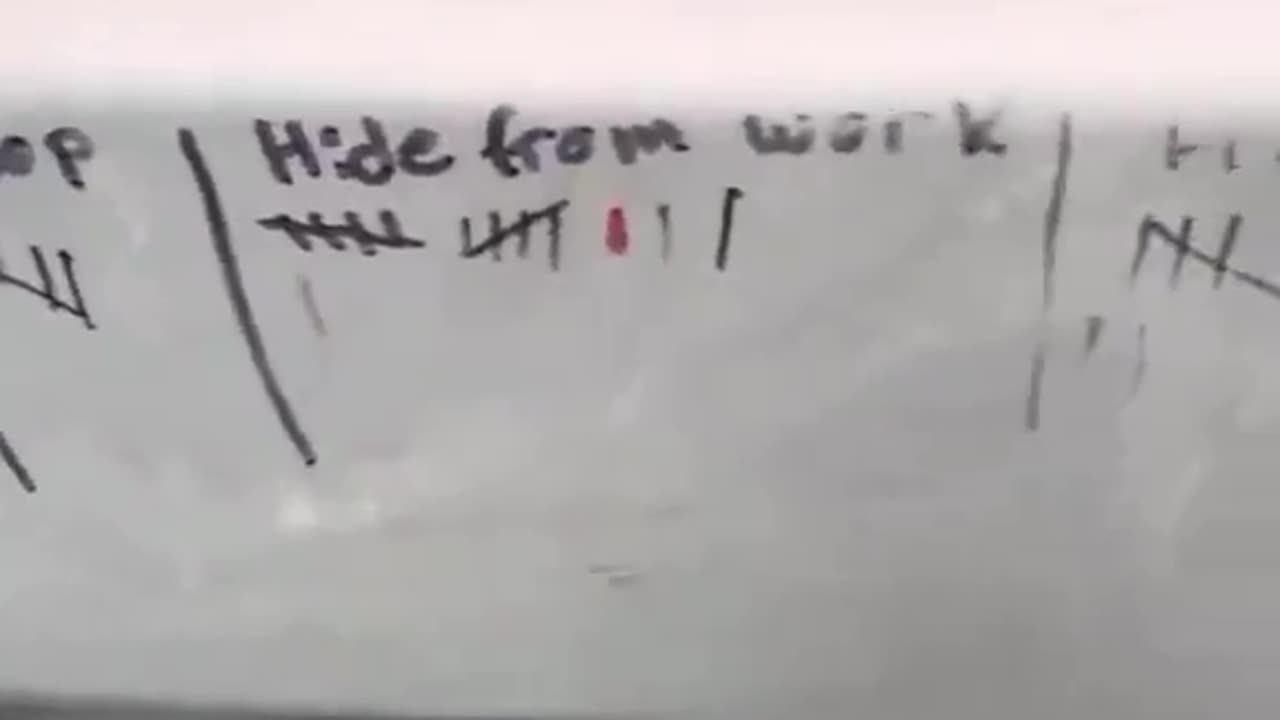 Hide from work